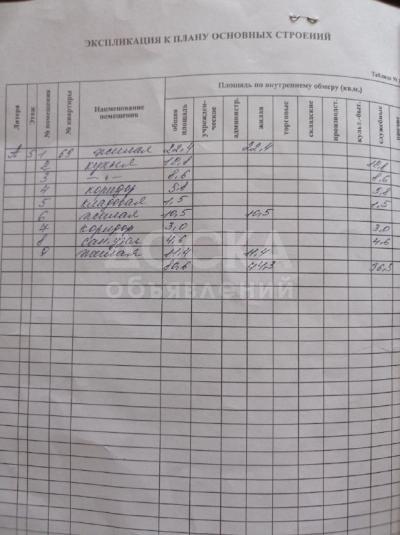 ЭКСПЛИКАЦИЯ К ПЛАНУ ОСНОВНЫХ СТРОЕНИЙ
Таблица №
Литера Этаж № помещения № квартиры Наименование помещения Площадь по внутреннему обмеру (кв.м.)
общая площадь учрежден-ческие администр. жилая торговые складские производст. культ.-быт. служебные
А 5 1 69 жилая 22,4 22,4
2 кухня 12,8 12,8
3 —„— 8,6 8,6
4 коридор 5,8 5,8
5 кладовая 1,5 1,5
6 жилая 10,5 10,5
7 коридор 3,0 3,0
8 санузел 4,6 4,6
жилая 11,4 11,4
80,6 44,3 36,3
ДОСКА
объявлений